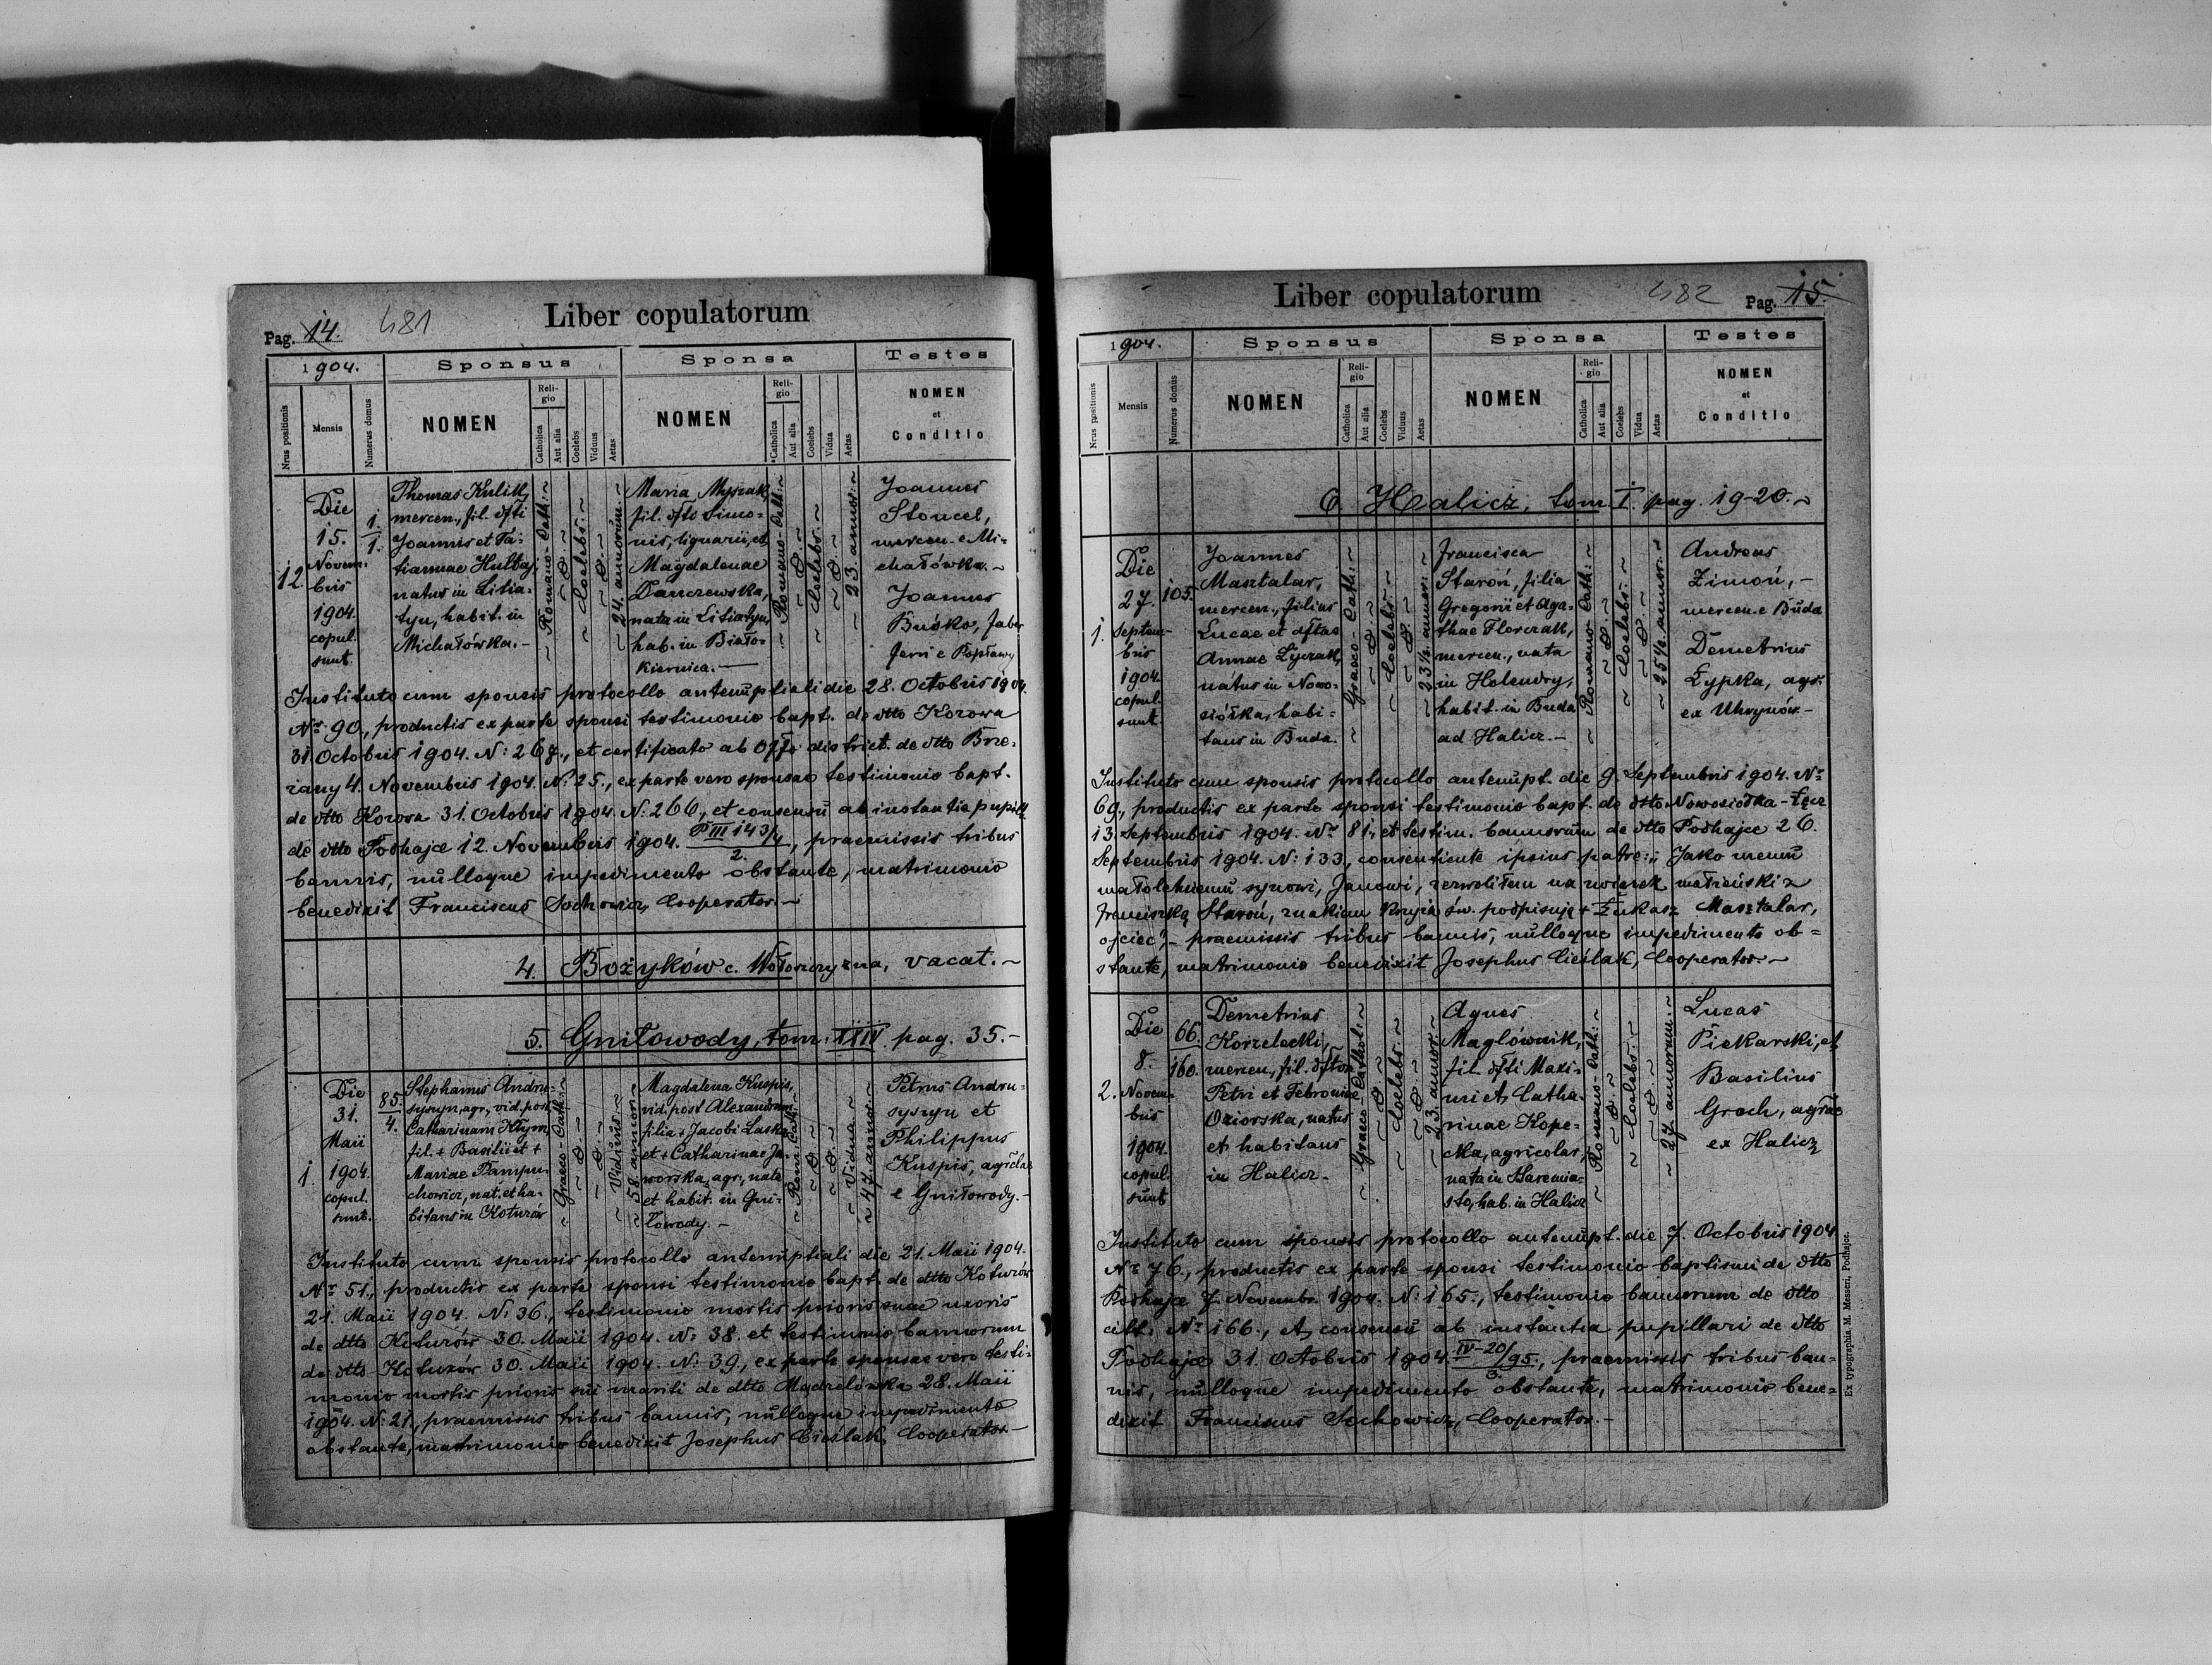 Pag. 14. 481
Liber copulatorum
1904.
Sponsus
Sponsa
Testes
Nrus positionis
Mensis
Numerus domus
NOMEN
Religio
Catholica
Aut alia
Coelebs
Viduus
Aetas
NOMEN
Religio
Catholica
Aut alia
Coelebs
Vidua
Aetas
NOMEN
et
Conditio
12.
Die
15.
Novem-
bris
1904.
copul.
sunt.
1.
1.
Thomas Kulik,
mercen., fil. dfti
Joannis et Ta-
tiannae Hultaj
natus in Litia-
tyn, habit. in
Michałówka.-
~ Romano-Cath: ~
~ Coelebs: ~
~ 24. annorum ~
Maria Myszak,
fil. dfti Simo-
nis, lignarii, et
Magdalenae
Danczewska,
nata in Litiatyn,
hab. in Biało-
kiernica.-
~ Romano-Cath: ~
~ Coelebs: ~
~ 23. annor: ~
Joannes
Stoncel,
mercen. e Mi-
chałówka.~
Joannes
Buśko, faber
ferri e Popławy
Instituto cum sponsis protocollo antenuptiali die 28. Octobris 1904.
Nr: 90., productis ex parte sponsi testimonio bapt. de dtto Kozowa
31. Octobris 1904. N: 267., et certificato ab Offo district. de dtto Brze-
żany 4. Novembris 1904. N: 25., ex parte vero sponsae testimonio bapt.
de dtto Kozowa 31. Octobris 1904. N: 266., et consensu ab instantia pupill.
de dtto Podhajce 12. Novembris 1904. P III 143/4 2., praemissis tribus
bannis, nulloque impedimento obstante, matrimonio
benedixit Franciscus Sochowicz, Cooperator.-
4. Bożyków c. Wołoszczyzna, vacat.~
5. Gniłowody, tom. pag. 35.-
1.
Die
31.
Maii
1904.
copul.
sunt.
85.
4.
Stephanus Andru-
syszyn, agr., vid. post
Catharinam Klym,
fil. + Basilii et +
Mariae Pampu-
chowicz, nat. et ha-
bitans in Kotuzów
~ Graeco-Cath: ~
~ Viduus ~
~ 58. annor: ~
Magdalena Kuspis,
vid. post Alexandrum
filia + Jacobi Laska
et + Catharinae Ja-
worska, agr., nata
et habit. in Gni-
łowody.-
~ Rom: Cath: ~
~ Vidua ~
~ 47. annor: ~
Petrus Andru-
syszyn et
Philippus
Kuspis, agrlae
e Gniłowody.-
Instituto cum sponsis protocollo antenuptiali die 21. Maii 1904.
Nr 51., productis ex parte sponsi testimonio bapt. de dtto Kotuzów
21. Maii 1904. N: 36., testimonio mortis prioris suae uxoris
de dtto Kotuzów 30. Maii 1904. N: 38. et testimonio bannorum
de dtto Kotuzów 30. Maii 1904. N: 39., ex parte sponsae vero testi-
monio mortis prioris sui mariti de dtto Mądzelówka 28. Maii
1904. N: 21., praemissis tribus bannis, nulloque impedimento
obstante, matrimonio benedixit Josephus Cieślak, Cooperator.-
Liber copulatorum
482 Pag. 15.
1904.
Sponsus
Sponsa
Testes
Nrus positionis
Mensis
Numerus domus
NOMEN
Religio
Catholica
Aut alia
Coelebs
Viduus
Aetas
NOMEN
Religio
Catholica
Aut alia
Coelebs
Vidua
Aetas
NOMEN
et
Conditio
6. Halicz, tom I. pag. 19-20.~
1.
Die
27.
Septem-
bris
1904.
copul.
sunt.
105.
Joannes
Masztalar,
mercen., filius
Lucae et dftae
Annae Łyczak,
natus in Nowo-
siółka, habi-
tans in Buda.
~ Graeco-Cath: ~
~ Coelebs: ~
~ 23 1/2. annor: ~
Francisca
Staroń, filia
Gregorii et Aga-
thae Florczak,
mercen., nata
in Holendry,
habit. in Buda
ad Halicz.-
~ Romano-Cath: ~
~ Coelebs: ~
~ 25 1/2. annor: ~
Andreas
Zimoń, -
mercen. e Buda
Demetrius
Łypka, agr.
ex Uhrynów.-
Instituto cum sponsis protocollo antenupt. die 9. Septembris 1904. Nr
69., productis ex parte sponsi testimonio bapt. de dtto Nowosiółka-
13. Septembris 1904. Nr 81., et testim. bannorum de dtto Podhajce 26.
Septembris 1904. N: 133., consentiente ipsius patre: „Jako memu
małoletniemu synowi, Janowi, zezwoliłem na związek małżeński z
Franciszką Staroń, znakiem Krzyża św. podpisuję + Łukasz Masztalar,
ojciec”- praemissis tribus bannis, nulloque impedimento ob-
stante, matrimonio benedixit Josephus Cieślak, Cooperator.-
2.
Die
8.
Novem-
bris
1904.
copul.
sunt
66.
160.
Demetrius
Korzelecki,
mercen., fil. dftor.
Petri et Febroniae
Oziorska, natus
et habitans
in Halicz.
~ Graeco-Cathol: ~
~ Coelebs: ~
~ 23. annor: ~
Agnes
Maglównik,
fil. dfti Maxi-
mi et Catha-
rinae Kope-
cka, agricolar.,
nata in Staremia-
sto, hab. in Halicz
~ Romano-Cath: ~
~ Coelebs: ~
~ 27. annorum: ~
Lucas
Piekarski, et
Basilius
Groch, agrlae
ex Halicz
Instituto cum sponsis protocollo antenupt. die 7. Octobris 1904.
Nr 76., productis ex parte sponsi testimonio baptismi de dtto
Podhajce 7. Novembr. 1904. N: 165., testimonio bannorum de dtto
citt. Nr 166., et consensu ab instantia pupillari de dtto
Podhajce 31. Octobris 1904. IV-20/95. 3., praemissis tribus ban-
nis, nulloque impedimento obstante, matrimonio bene-
dixit Franciscus Sochowicz, Cooperator.-
Ex typographia M. Messeri, Podhajce.